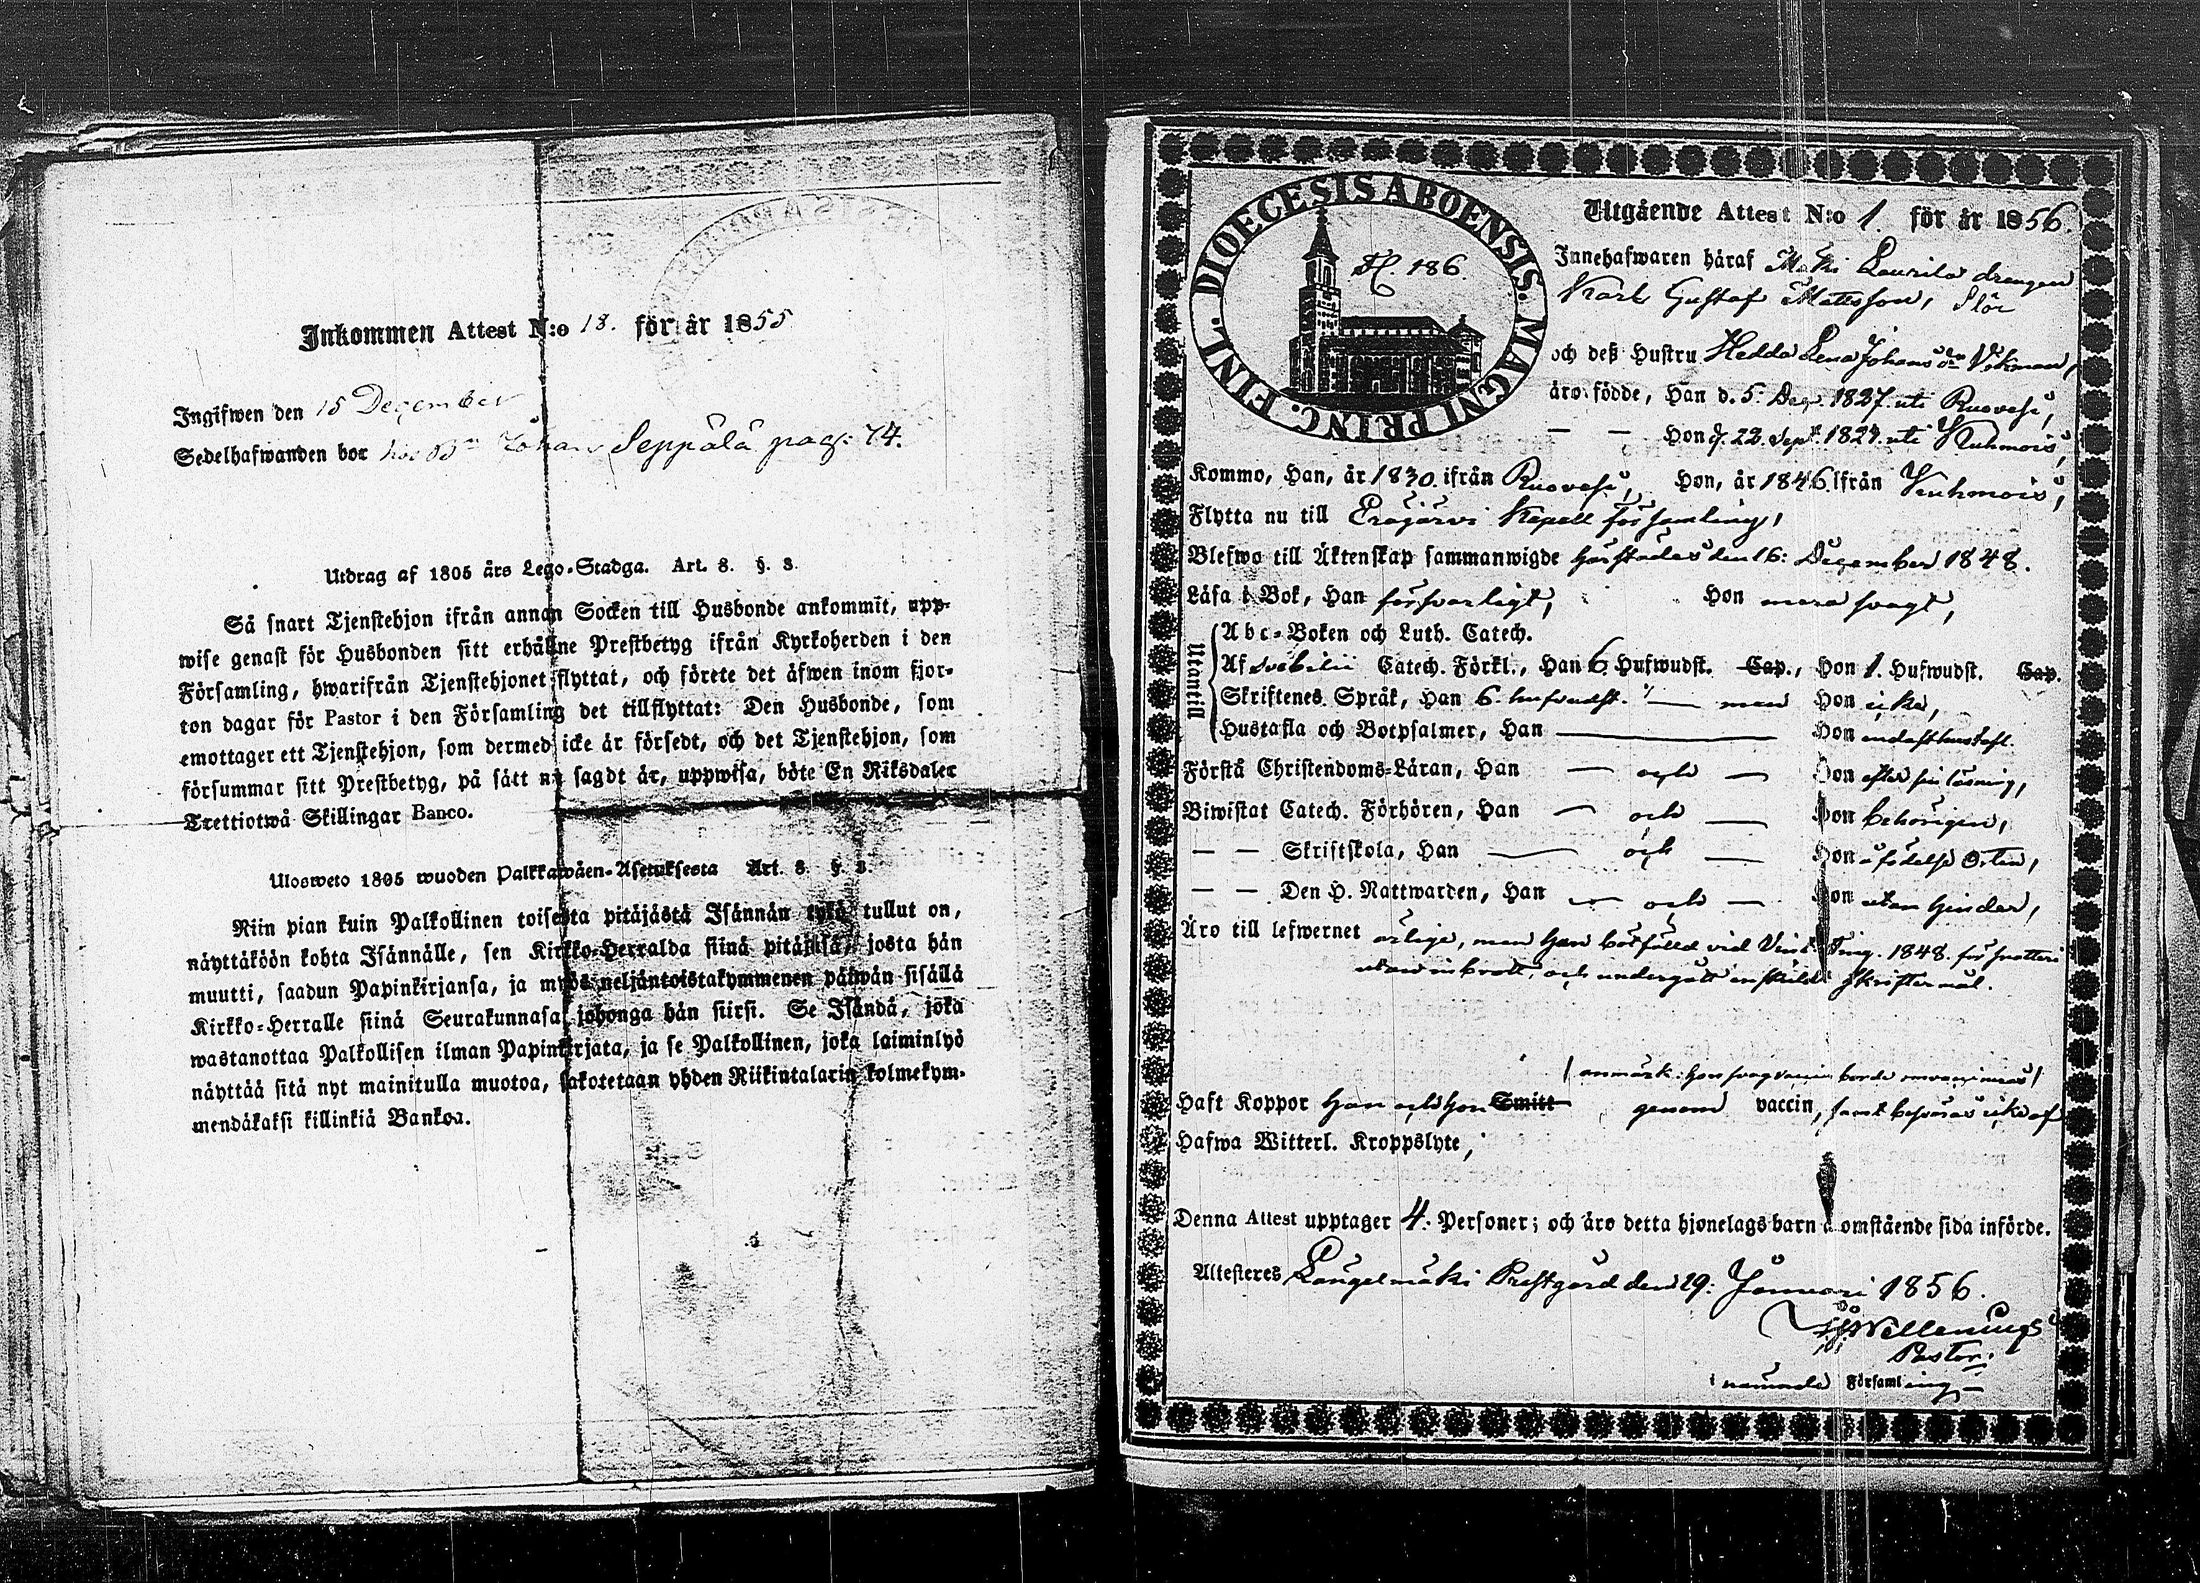 Inkommen Attest N:o 18. för år 1855
Ingifwen den 15 December
Sedelhafwanden bor hos Johan Seppälä pag: 74.
Utdrag af 1805 års Lego-Stadga. Art. 8. §. 3.
Så snart Tjenstehjon ifrån annan Socken till Husbonde ankommit, upp-
wise genast för Husbonden sitt erhållne Prestbetyg ifrån Kyrkoherden i den
Församling, hwarifrån Tjenstehjonet flyttat, och förete det äfwen inom fjor-
ton dagar för Pastor i den Församling det tillflyttat: Den Husbonde, som
emottager ett Tjenstehjon, som dermed icke är försedt, och det Tjenstehjon, som
försummar sitt Prestbetyg, på sätt nu sagdt är, uppwisa, böte En Riksdaler
Trettiotwå Skillingar Banco.
Ulosweto 1805 wuoden Palkkawäen-Asetuksesta Art. 8 §. 3.
Niin pian kuin Palkollinen toisesta pitäjästä Isännän tykö tullut on,
näyttäköön kohta Isännälle, sen Kirkko-Herralda siinä pitäjäsä, josta hän
muutti, saadun Papinkirjansa, ja myös neljäntoistakymmenen päiwän sisällä
Kirkko-Herralle siinä Seurakunnasa johonga hän siirsi. Se Isändä, joka
wastanottaa Palkollisen ilman Papinkirjata, ja se Palkollinen, joka laiminlyö
näyttää sitä nyt mainitulla muotoa, sakotetaan yhden Riikintalarin kolmekym-
mendäkaksi killinkiä Bankoa.
FINL. DIOECESIS ABOENSIS. MAGNI PRINC.
186.
Utgående Attest N:o 1. för år 1856.
Innehafwaren häraf Mäki Laurila drengen
Karl Gustaf Mattsson, Flör
och deß Hustru Hedda Lena Johans dr Vikman,
äro födde, Han d. 5. Dec. 1827. uti Ruovesi,
— — Hon d. 22. Sept. 1827. uti Kuhmois,
Kommo, Han, år 1830. ifrån Ruovesi, Hon, år 1846. ifrån Kuhmois,
Flytta nu till Eräjärvi Kapell församling,
Blefwo till Äktenskap sammanwigde härstädes den 16: December 1848.
Läsa i Bok, Han försvarligt, Hon mera svagt,
Utantill
Abc-Boken och Luth. Catech.
Af Svebilii Catech. Förkl., Han 6. Hufwudst. Cap., Hon 1. Hufwudst. Cap.
Skriftenes Språk, Han 6. hufvudst. — men Hon icke,
Hustafla och Botpsalmer, Han — Hon endast hustafl.
Förstå Christendoms-Läran, Han — och — Hon efter sin läsning,
Biwistat Catech. Förhören, Han — och — Hon behörigen,
— — Skriftskola, Han — och — Hon å födelse Orten,
— — Den H. Nattwarden, Han — och — Hon utan hinder,
Äro till lefwernet ärlige, men Han bötfälld vid Ting. 1848. för snatteri
utan inbrott, och undergått enskildt Skriftermål.
Haft Koppor Han och Hon Smitt genom vaccin, samt besväras icke af
Hafwa Witterl. Kroppslyte,
Denna Attest upptager 4. Personer; och äro detta hjonelags barn å omstående sida införde.
Attesteres Längelmäki Prestgård den 29: Januari 1856.
Pastor.
i nämnde Församling